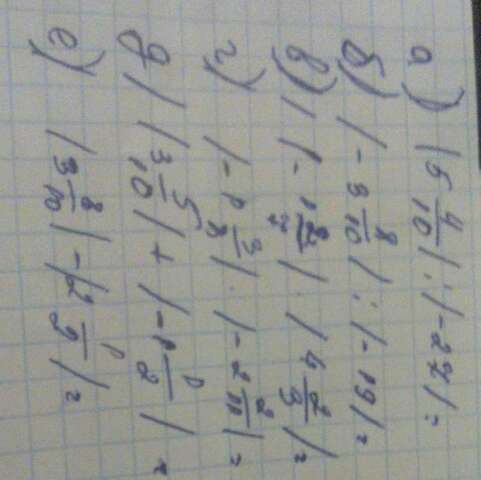 а) |5 4/10| : |-27| =
б) |-3 8/10| : |-19| =
в) |-1 2/7| · |4 2/3| =
г) |-1 3/8| · |-2 2/11| =
д) |3 5/10| + |-1 1/2| =
е) |3 8/10| - |2 1/2| =